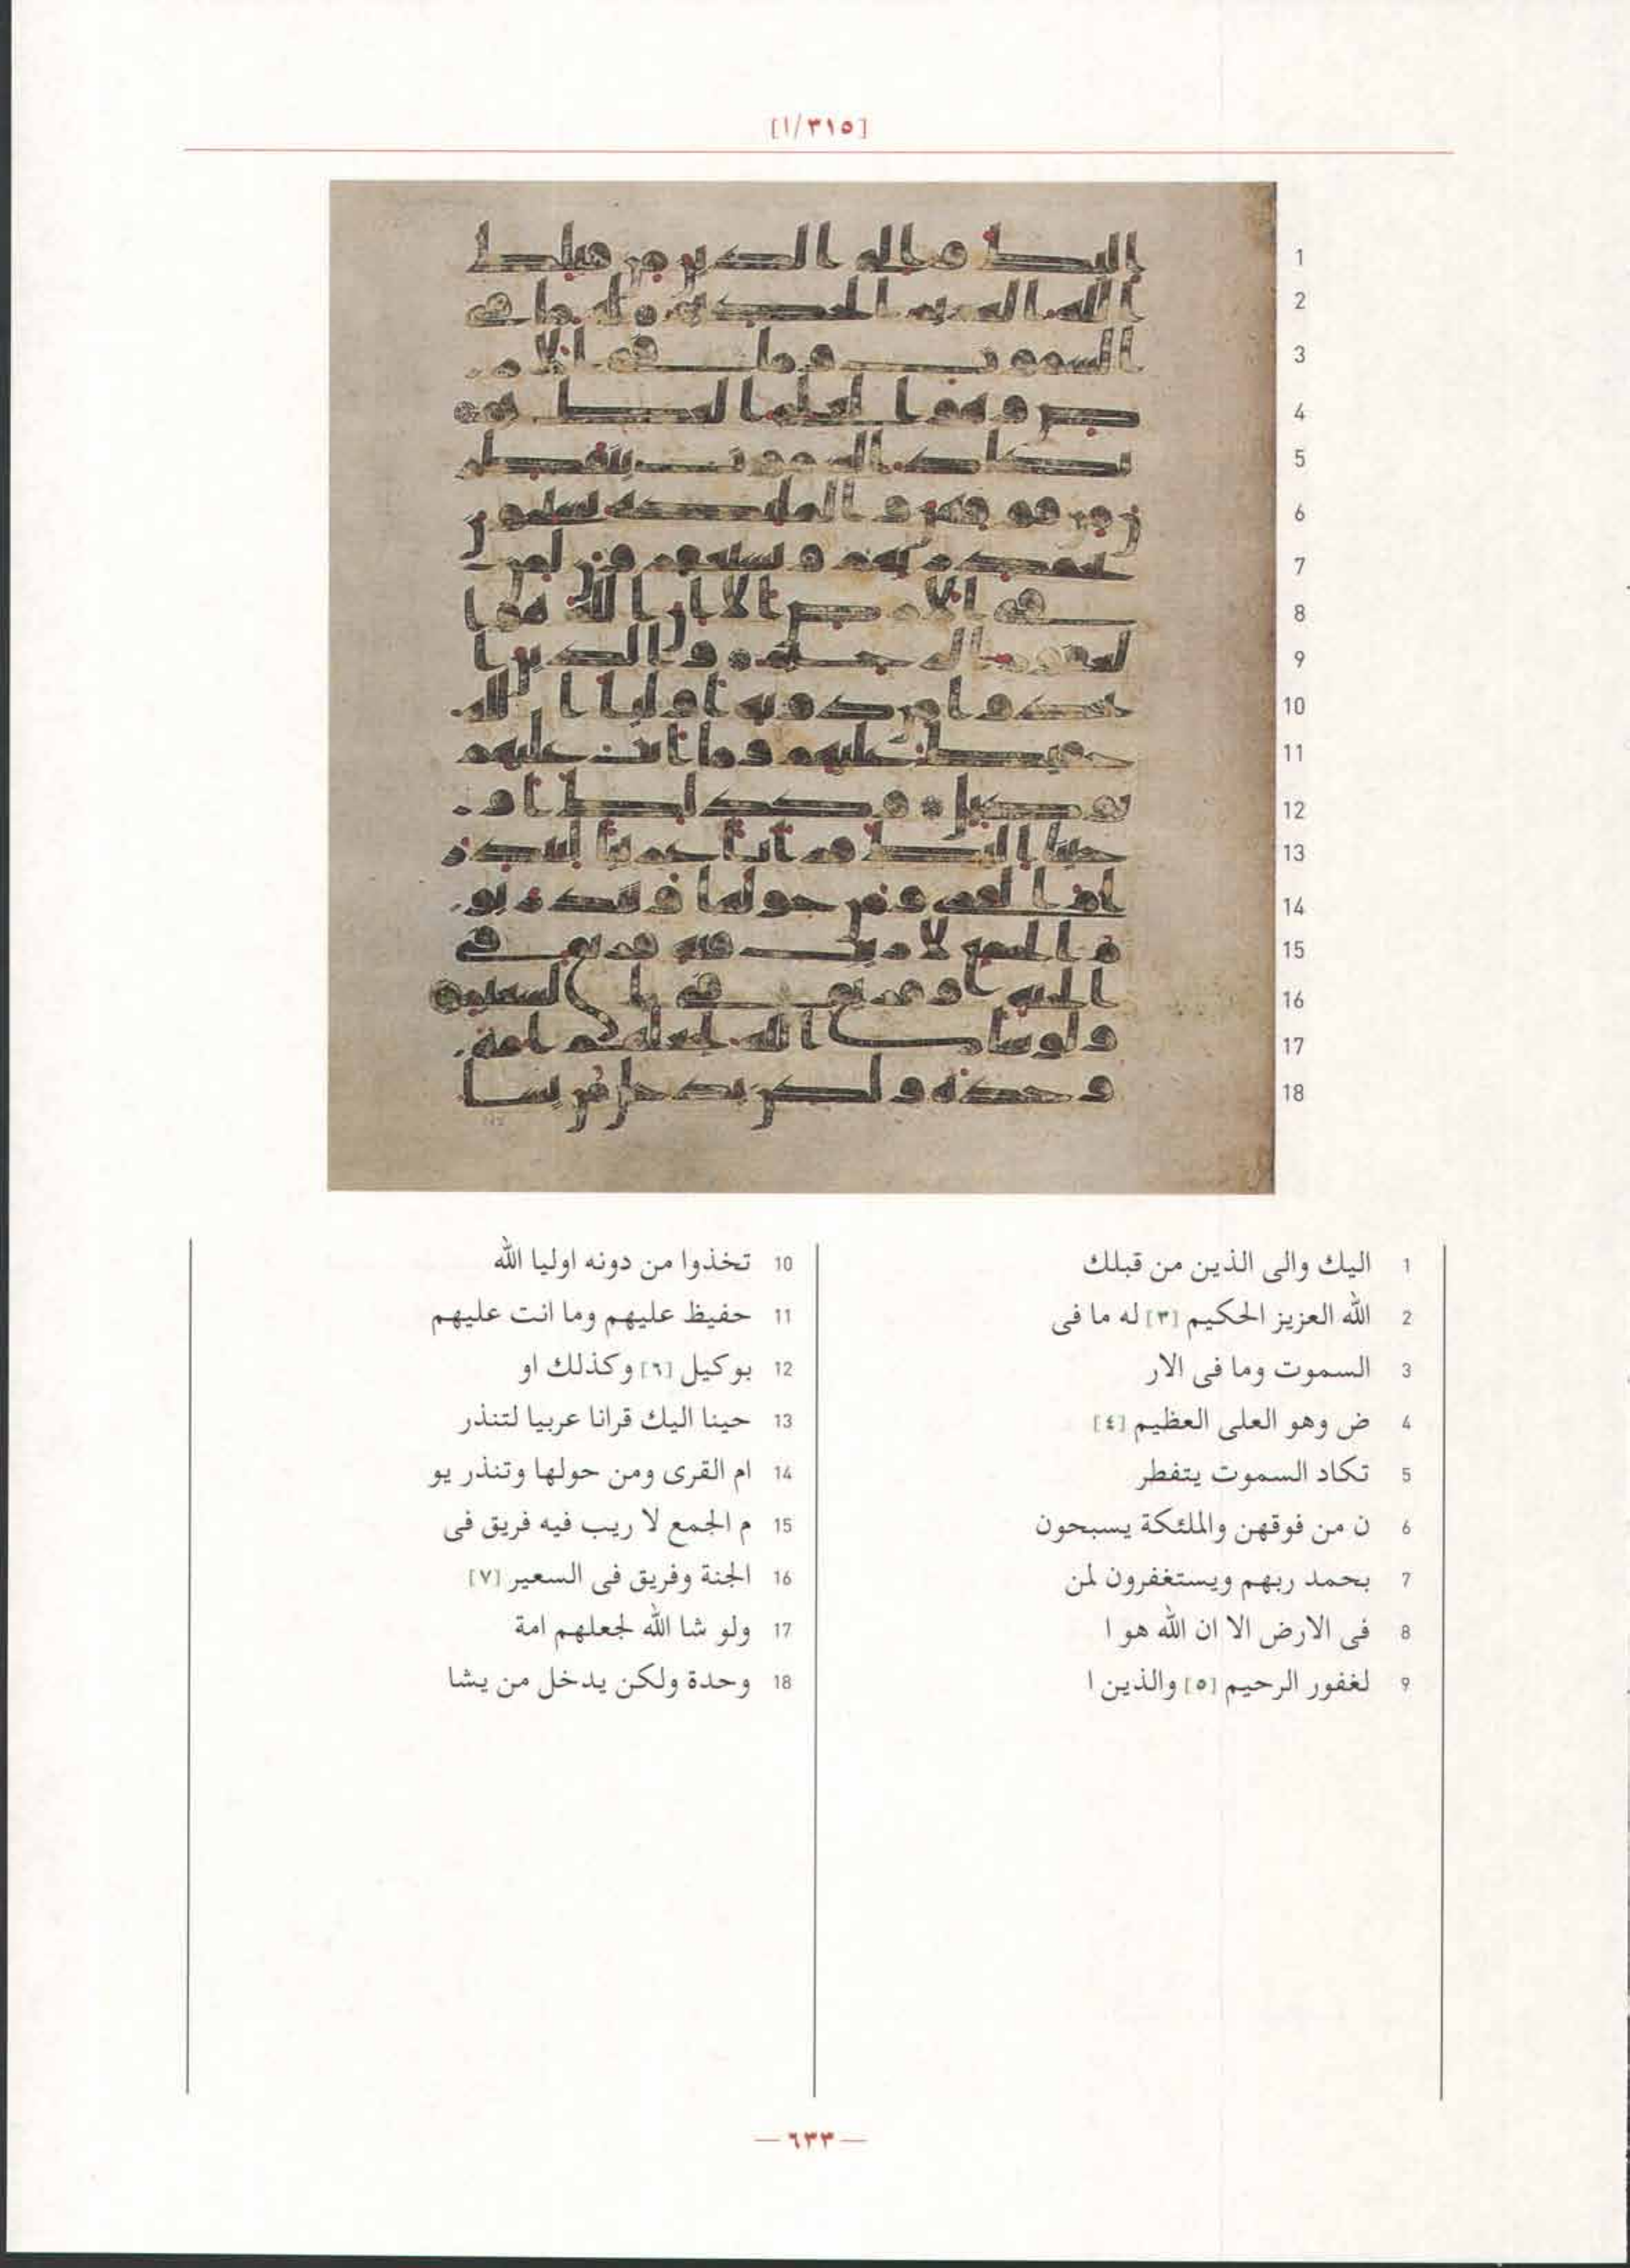 [٣١٥/ا]
1 اليك والى الذين من قبلك
2 الله العزيز الحكيم [٣] له ما فى
3 السموت وما فى الار
4 ض وهو العلى العظيم [٤]
5 تكاد السموت يتفطر
6 ن من فوقهن والملئكة يسبحون
7 بحمد ربهم ويستغفرون لمن
8 فى الارض الا ان الله هو ا
9 لغفور الرحيم [٥] والذين ا
10 تخذوا من دونه اوليا الله
11 حفيظ عليهم وما انت عليهم
12 بوكيل [٦] وكذلك او
13 حينا اليك قرانا عربيا لتنذر
14 ام القرى ومن حولها وتنذر يو
15 م الجمع لا ريب فيه فريق فى
16 الجنة وفريق فى السعير [٧]
17 ولو شا الله لجعلهم امة
18 وحدة ولكن يدخل من يشا
— ٦٣٣ —